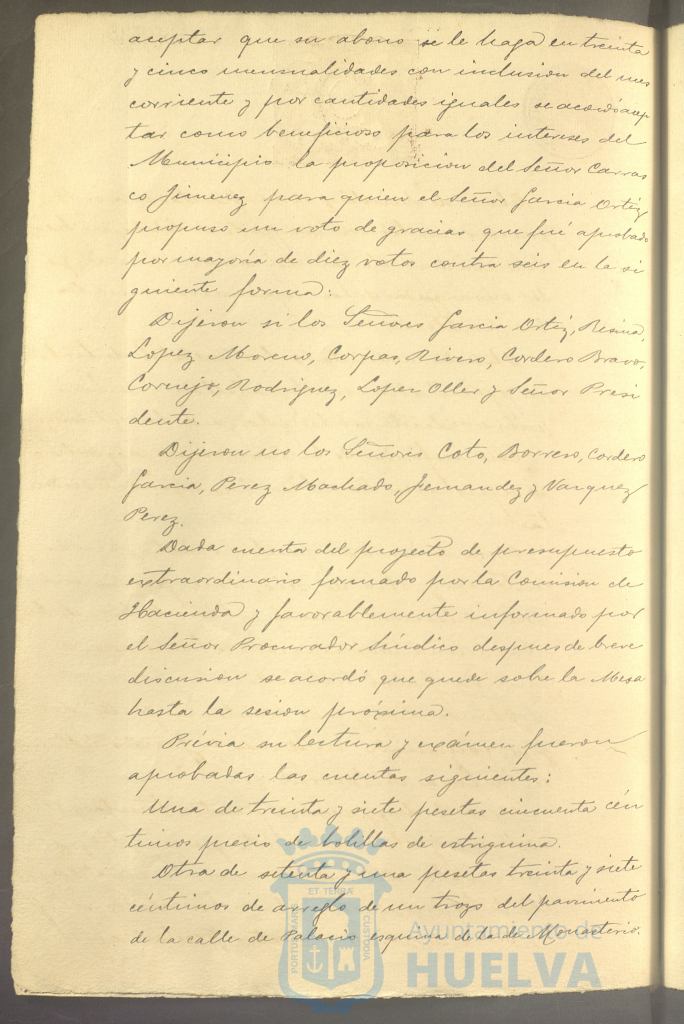 aceptar que su abono se le haga en treinta
y cinco mensualidades con inclusion del mes
corriente y por cantidades iguales se acordó acep
tar como beneficioso para los intereses del
Municipio la proposicion del Señor Carras
co Jimenez para quien el Señor Garcia Ortiz
propuso un voto de gracias que fué aprobado
por mayoría de diez votos contra seis en la si
guiente forma:
Dijeron si los Señores Garcia Ortiz, Resina,
Lopez Moreno, Corpas, Rivero, Cordero Bravo,
Cornejo, Rodriguez, Lopez Oller y Señor Presi
dente.
Dijeron no los Señores Coto, Borrero, Cordero
Garcia, Perez Machado, Fernandez y Vazquez
Perez.
Dada cuenta del proyecto de presupuesto
extraordinario formado por la Comision de
Hacienda y favorablemente informado por
el Señor Procurador Síndico despues de breve
discusion se acordó que quede sobre la Mesa
hasta la sesion próxima.
Prévia su lectura y exámen fueron
aprobadas las cuentas siguientes:
Una de treinta y siete pesetas cincuenta cén
timos precio de bolillas de estriguina.
Otra de setenta y una pesetas treinta y siete
céntimos de arreglo de un trozo del pavimento
de la calle de Palacio esquina de la de Monasterio.
PORTUS MARIS ET TERRÆ CUSTODIA
Ayuntamiento de
HUELVA